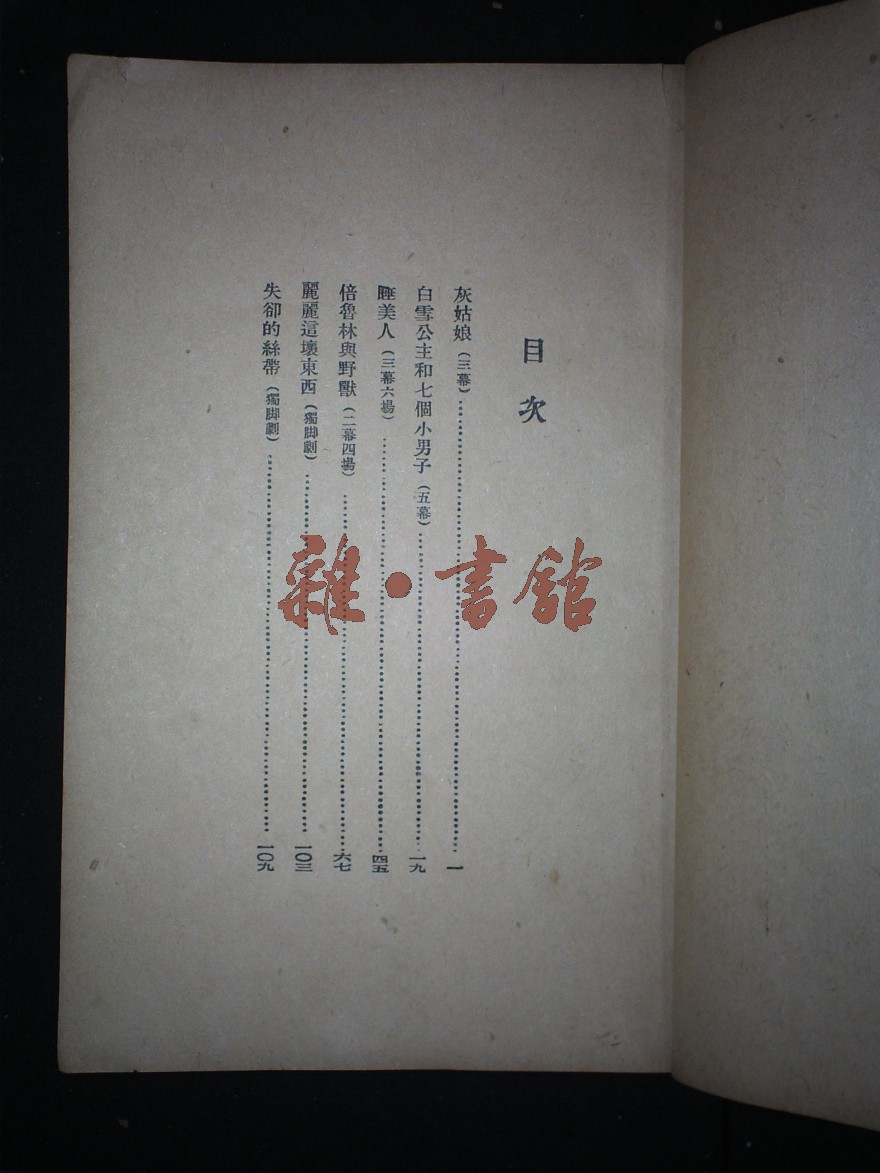 目次
灰姑娘(三幕)⋯⋯⋯⋯⋯⋯⋯⋯⋯⋯一
白雪公主和七個小男子(五幕)⋯⋯⋯⋯⋯⋯⋯⋯一九
睡美人(三幕六場)⋯⋯⋯⋯⋯⋯⋯⋯⋯⋯四五
倍魯林與野獸(二幕四場)⋯⋯⋯⋯⋯⋯⋯⋯⋯六七
麗麗這壞東西(獨脚劇)⋯⋯⋯⋯⋯⋯⋯⋯⋯一〇三
失卻的絲帶(獨脚劇)⋯⋯⋯⋯⋯⋯⋯⋯⋯一〇九
雜·書館